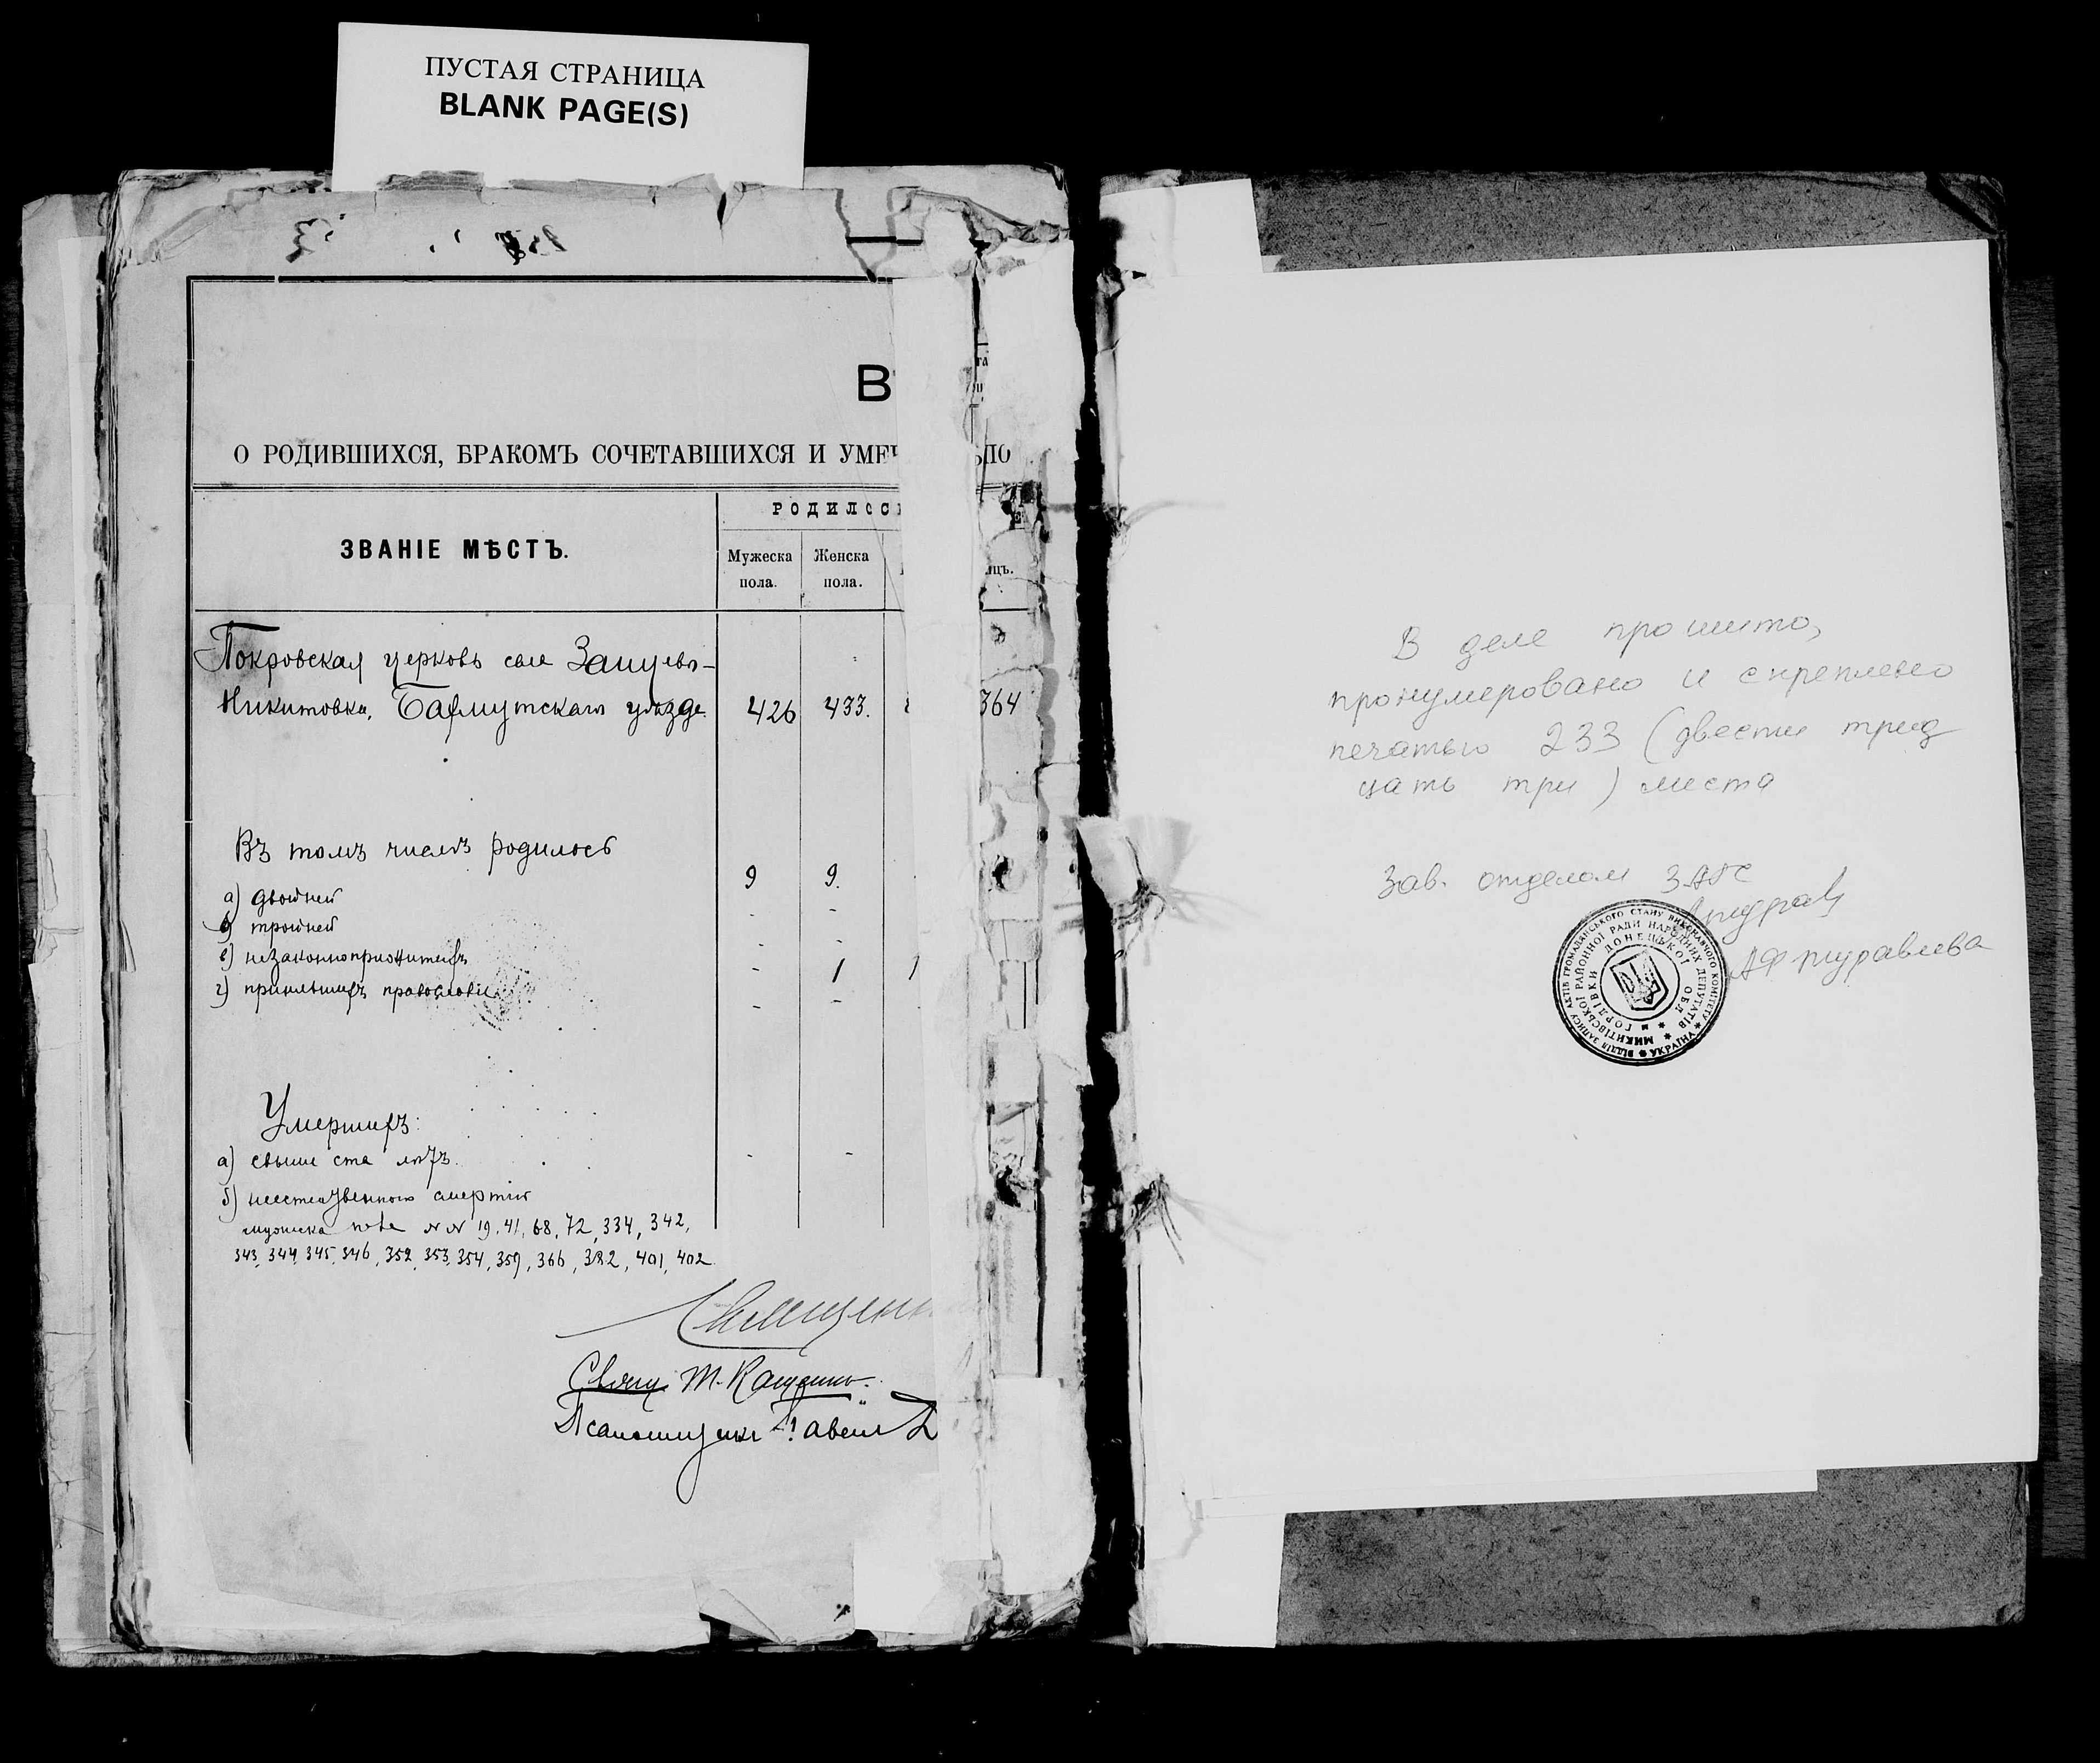 ПУСТАЯ СТРАНИЦА
BLANK PAGE(S)
В
О РОДИВШИХСЯ, БРАКОМЪ СОЧЕТАВШИХСЯ И УМЕ
ЗВАНІЕ МѢСТЪ.
РОДИЛОС
Мужеска пола.
Женска пола.
Покровская церковь села Зайцево-
Никитовки, Бахмутскаго уѣзда 426 433. 364
Въ томъ числѣ родилось
а) двойней 9 9.
тройней - -
в) незаконноприжитыхъ - -
г) принявшихъ православіе - 1 1
Умершихъ:
а) свыше ста лѣтъ. - -
б) неестественною смертію
мужска пола №№ 19, 41, 68, 72, 334, 342,
343, 344, 345, 346, 352, 353, 354, 359, 366, 382, 401, 402
Священн
Свящ. Т.
Псаломщикъ Павелъ
В деле прошито,
пронумеровано и скреплено
печатью 233 (двести трид
цать три) листа
Зав. отделом ЗАГС
АФ Журавлева
ВІДДІЛ ЗАПИСУ АКТІВ ГРОМАДЯНСЬКОГО СТАНУ ВИКОНАВЧОГО КОМІТЕТУ * УКРАЇНА *
МИКИТІВСЬКОЇ РАЙОННОЇ РАДИ НАРОДНИХ ДЕПУТАТІВ *
М ГОРЛІВКИ ДОНЕЦЬКОЇ ОБЛ *